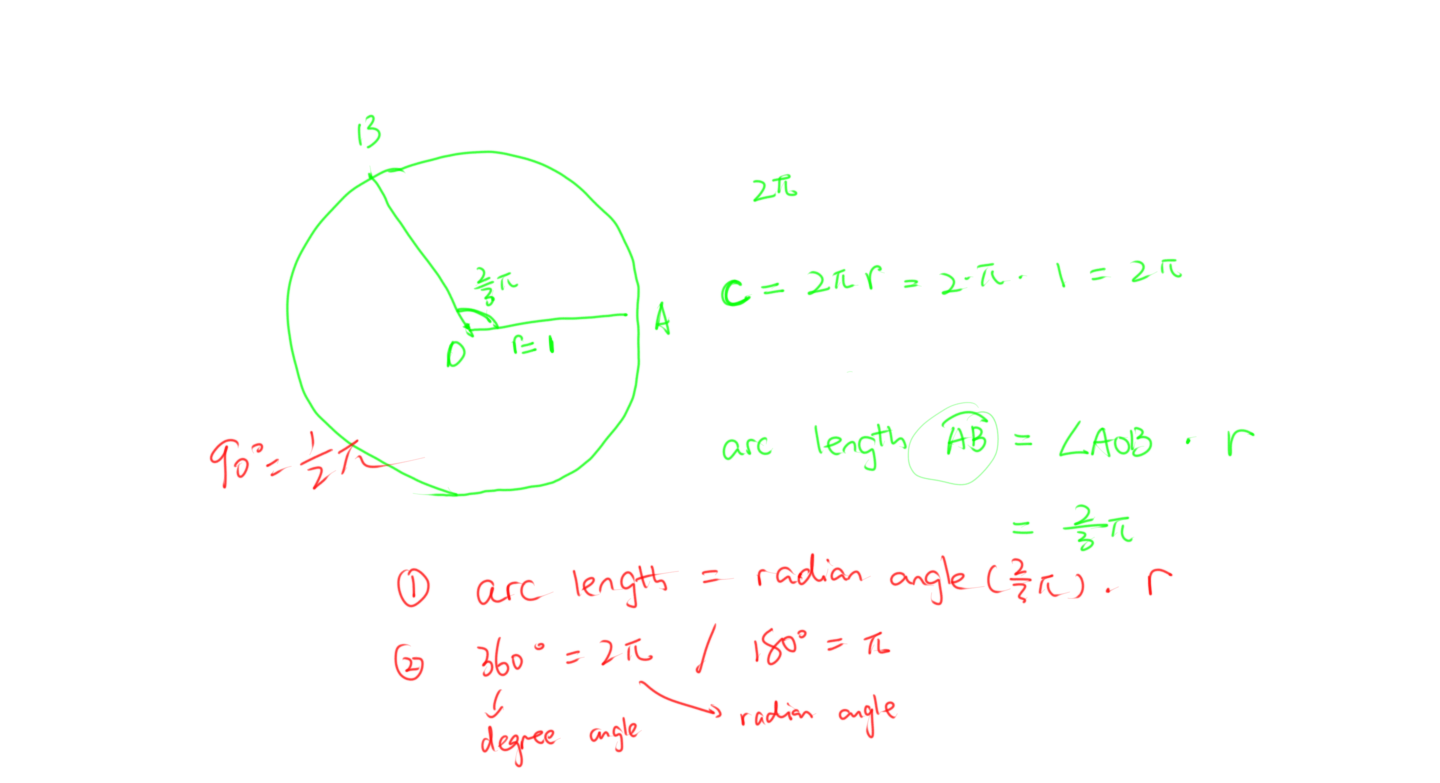 B
2π
2/3 π
C = 2πr = 2·π · 1 = 2π
A
O
r=1
90° = 1/2 π
arc length AB = ∠AOB · r
= 2/3 π
① arc length = radian angle (2/3 π) · r
② 360° = 2π / 180° = π
degree angle
radian angle